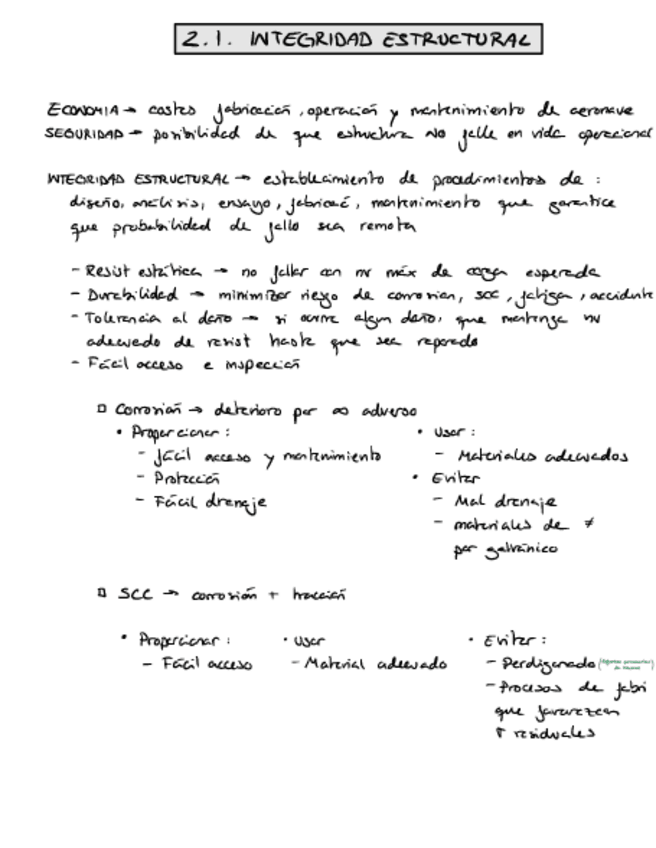 2.1. INTEGRIDAD ESTRUCTURAL
ECONOMIA → costes fabricación, operación y mantenimiento de aeronave
SEGURIDAD → posibilidad de que estructura NO falle en vida operacional
INTEGRIDAD ESTRUCTURAL → establecimiento de procedimientos de :
diseño, análisis, ensayo, fabricac, mantenimiento que garantice
que probabilidad de fallo sea remota
- Resist estática → no fallar con nv máx de carga esperada
- Durabilidad → minimizar riesgo de corrosion, SCC, fatiga, accidente
- Tolerancia al daño → si ocurre algun daño, que mantenga nv
adecuado de resist hasta que sea reparado
- Fácil acceso e inspección
Corrosión → deterioro por ∞ adverso
• Proporcionar :
- fácil acceso y mantenimiento
- Protección
- Fácil drenaje
• Usar :
- Materiales adecuados
• Evitar
- Mal drenaje
- materiales de ≠
par galvánico
SCC → corrosión + tracción
• Proporcionar :
- Fácil acceso
• Usar
- Material adecuado
• Evitar :
- Perdigonado
- Procesos de fabri
que favorezcan
σ residuales